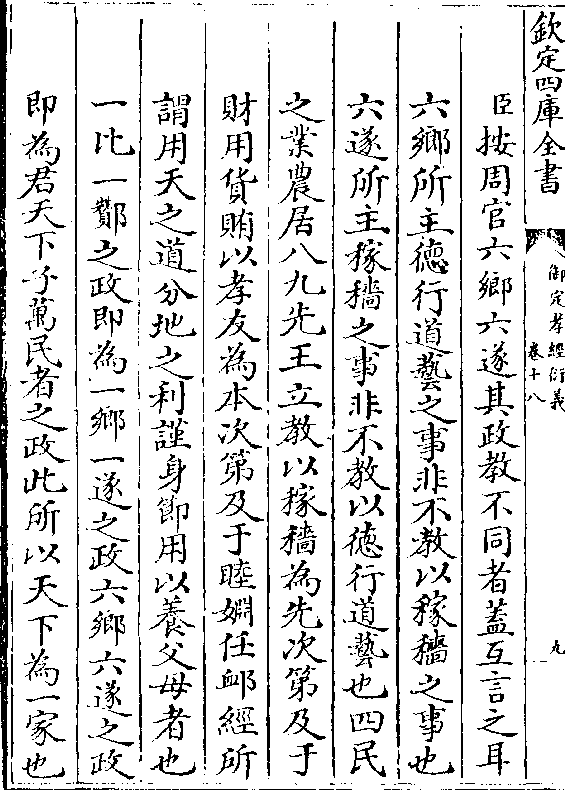 欽定四庫全書
御定孝經衍義
卷十八
九
臣按周官六鄉六遂其政教不同者蓋互言之耳
六鄉所主德行道藝之事非不教以稼穡之事也
六遂所主稼穡之事非不教以德行道藝也四民
之業農居八九先王立教以稼穡為先次第及于
財用貨賄以孝友為本次第及于睦婣任䘏經所
謂用天之道分地之利謹身節用以養父母者也
一比一酇之政即為一鄉一遂之政六鄉六遂之政
即為君天下子萬民者之政此所以天下為一家也